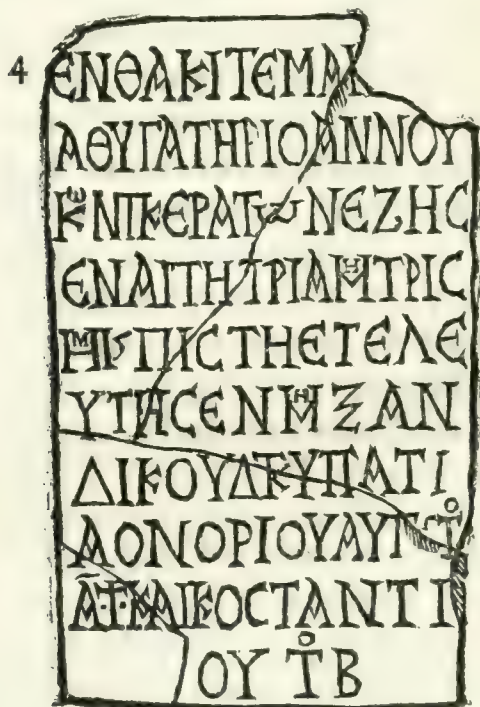 4
ΕΝΘΑΚΙΤΕΜΑ
ΑΘΥΓΑΤΗΡΙΟΑΝΝΟΥ
ΚΕΝΙΚΕΡΑΤωΝΕΖΗϹ
ΕΝΑΙΤΗΤΡΙΑΜΗΤΡΙϹ
ΜΗΙϚΠΙϹΤΗΕΤΕΛΕ
ΥΤΗϹΕΝΜΗΞΑΝ
ΔΙΚΟΥΔΚΥΠΑΤΙ
ΑΟΝΟΡΙΟΥΑΥΓϚΤΟ
Α̅·Τ·ΚΑΙΚΟϹΤΑΝΤΙ
ΟΥ ΤΟ Β